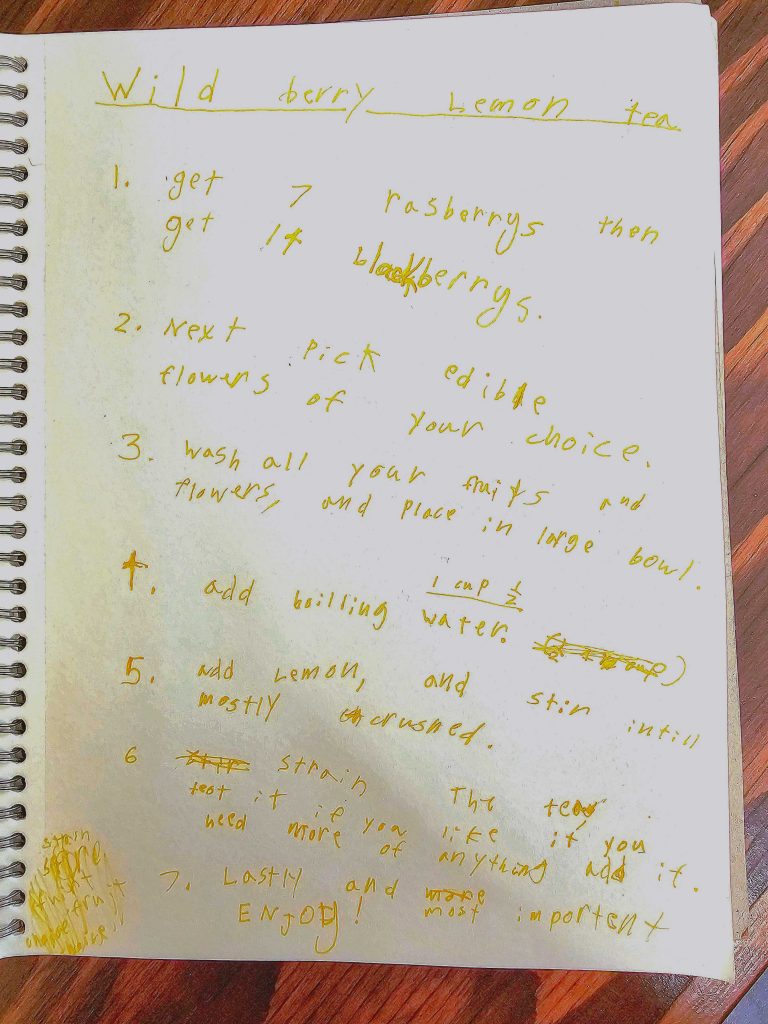 Wild berry Lemon tea
1. get 7 rasberrys then
get 14 blackberrys.
2. Next pick edible
flowers of your choice.
3. wash all your fruits and
flowers, and place in large bowl.
4. add boilling 1 cup 1/2
water.
5. add Lemon, and stir intill
mostly crushed.
6 strain The tea.
test it if you like it, you
need more of anything add it.
7. Lastly and most importent
ENJOY!
strain
fruit